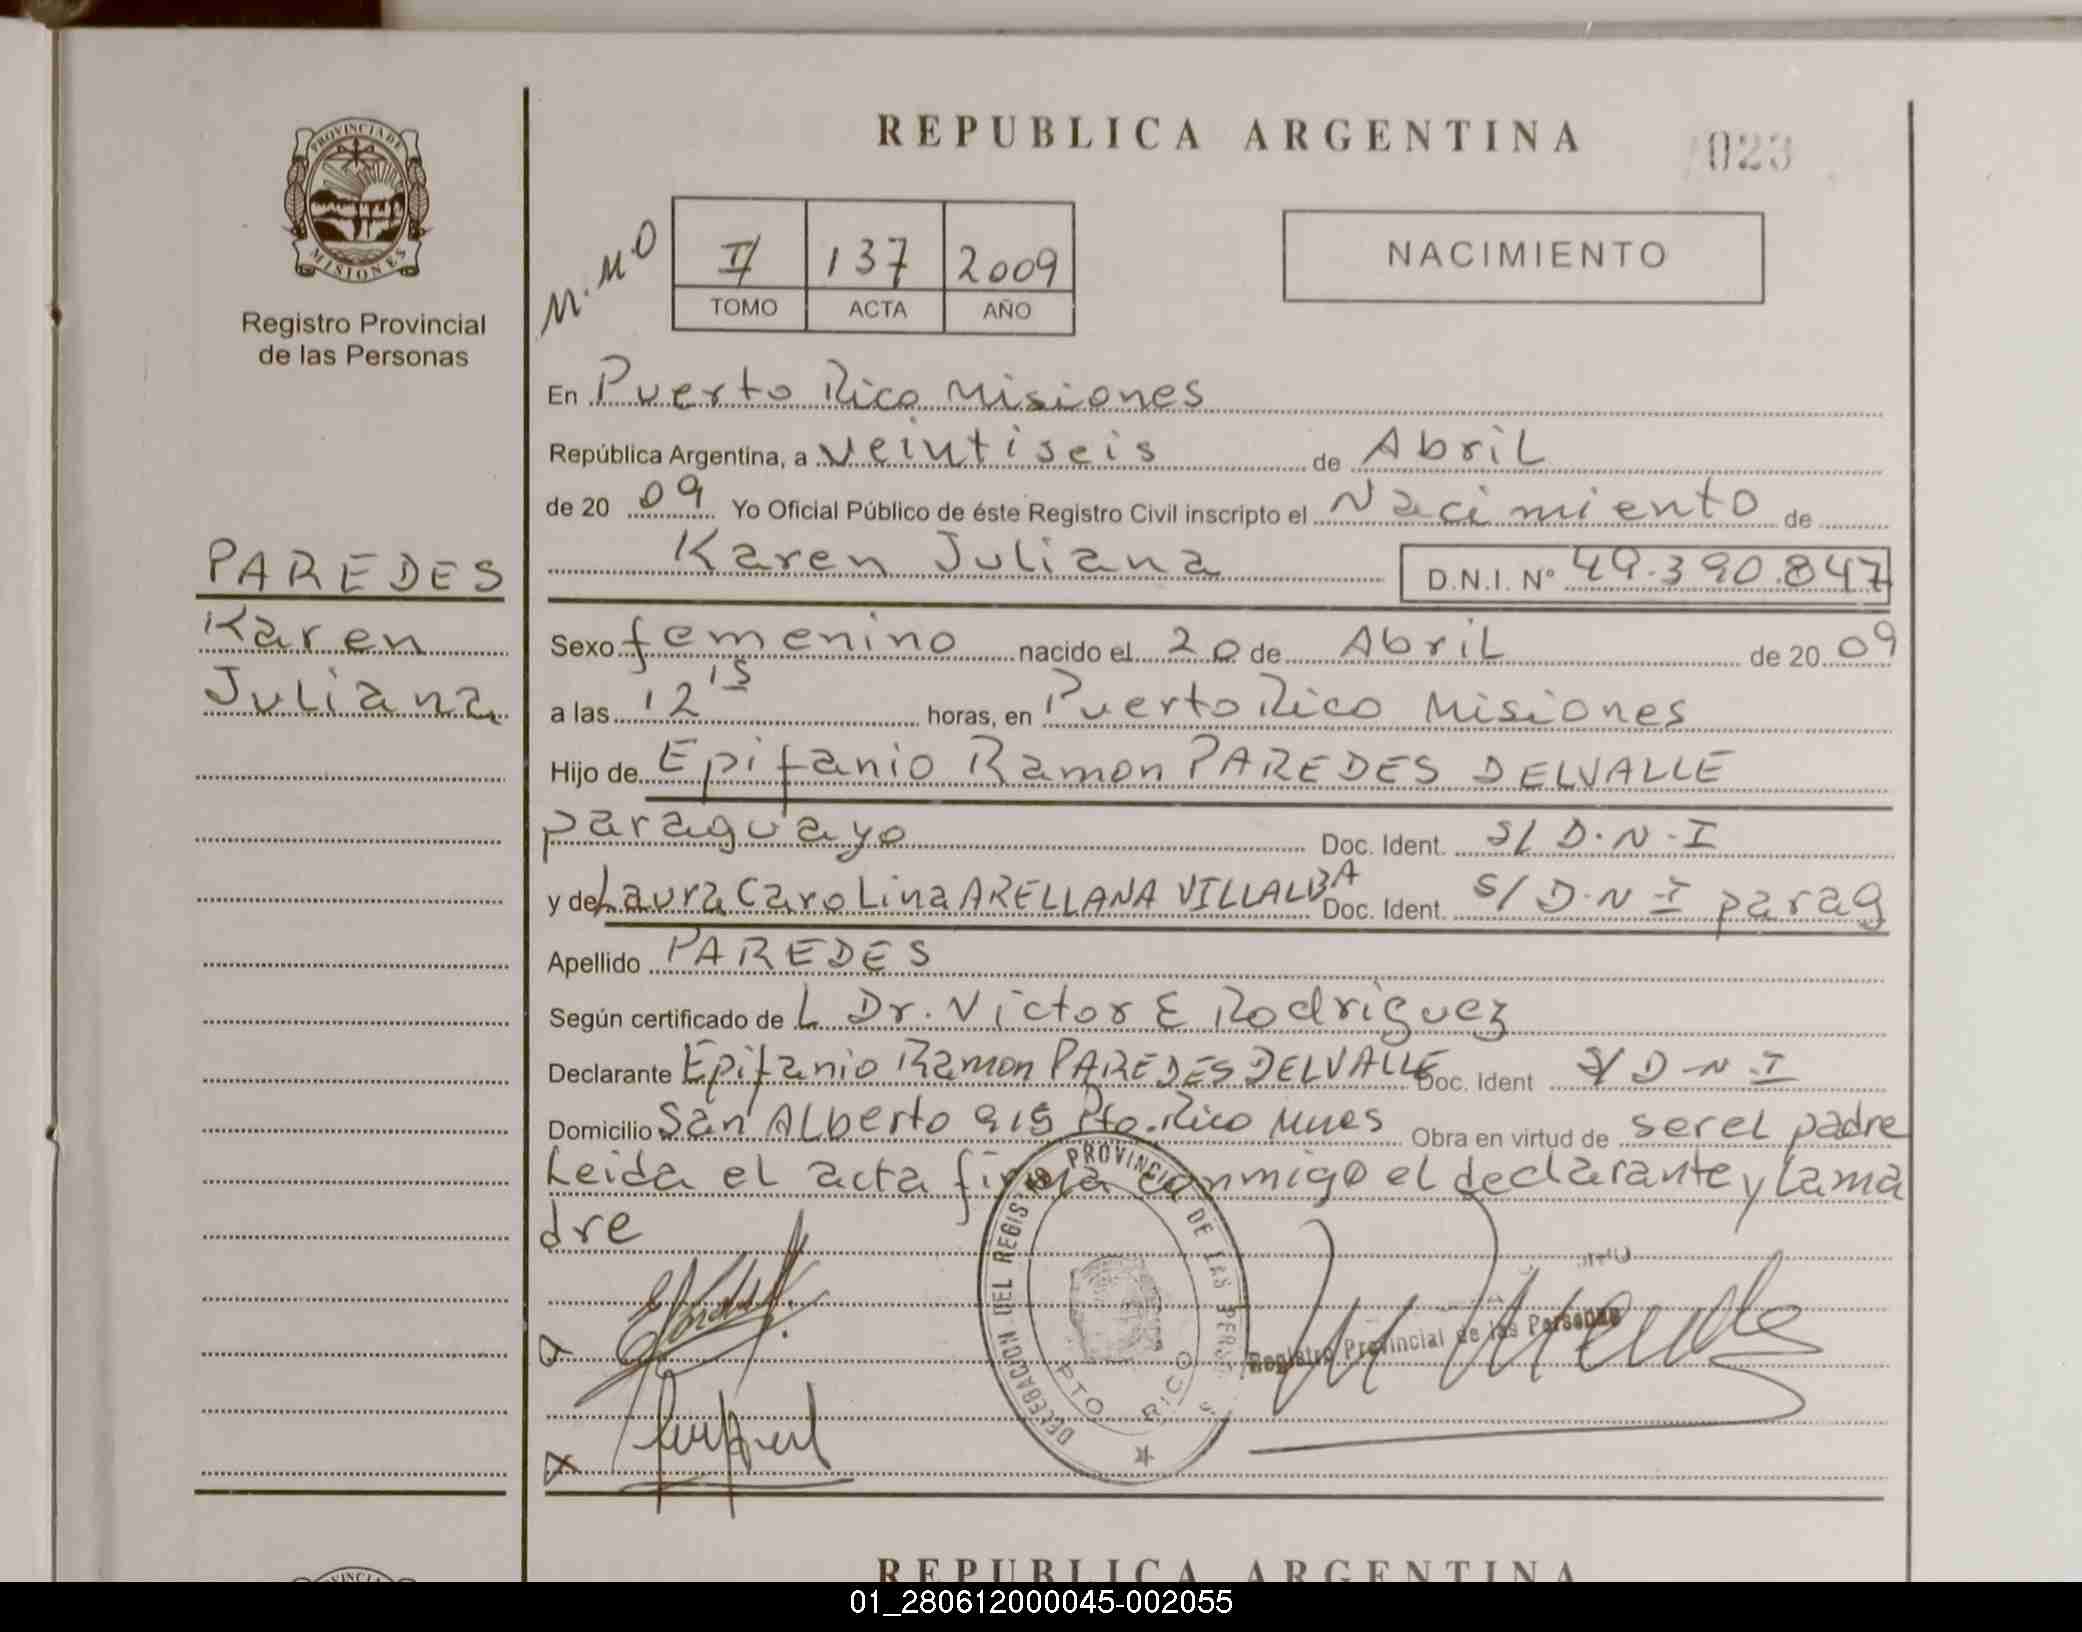 REPUBLICA ARGENTINA
023
PROVINCIA DE
MISIONES
Registro Provincial
de las Personas
M.M.O
II 137 2009
TOMO ACTA AÑO
NACIMIENTO
En Puerto Rico Misiones
República Argentina, a veintiseis de Abril
de 20 09 Yo Oficial Público de éste Registro Civil inscripto el Nacimiento de
Karen Juliana D.N.I. N° 49.390.847
PAREDES
Karen
Juliana
Sexo femenino nacido el 20 de Abril de 20 09
a las 12 15 horas, en Puerto Rico Misiones
Hijo de Epifanio Ramon PAREDES DELVALLE
paraguayo Doc. Ident. S/ D.N.I
y de Laura Carolina ARELLANA VILLALBA Doc. Ident. S/ D.N.I parag
Apellido PAREDES
Según certificado de L Dr. Victor E Rodriguez
Declarante Epifanio Ramon PAREDES DELVALLE Doc. Ident S/ D.N.I
Domicilio San Alberto 915 Pto. Rico Mnes Obra en virtud de ser el padre
Leida el acta firma conmigo el declarante y la ma
dre
DELEGACION DEL REGISTRO PROVINCIAL DE LAS PERS
PTO RICO
Registro Provincial de las Personas
REPUBLICA ARGENTINA
01_280612000045-002055